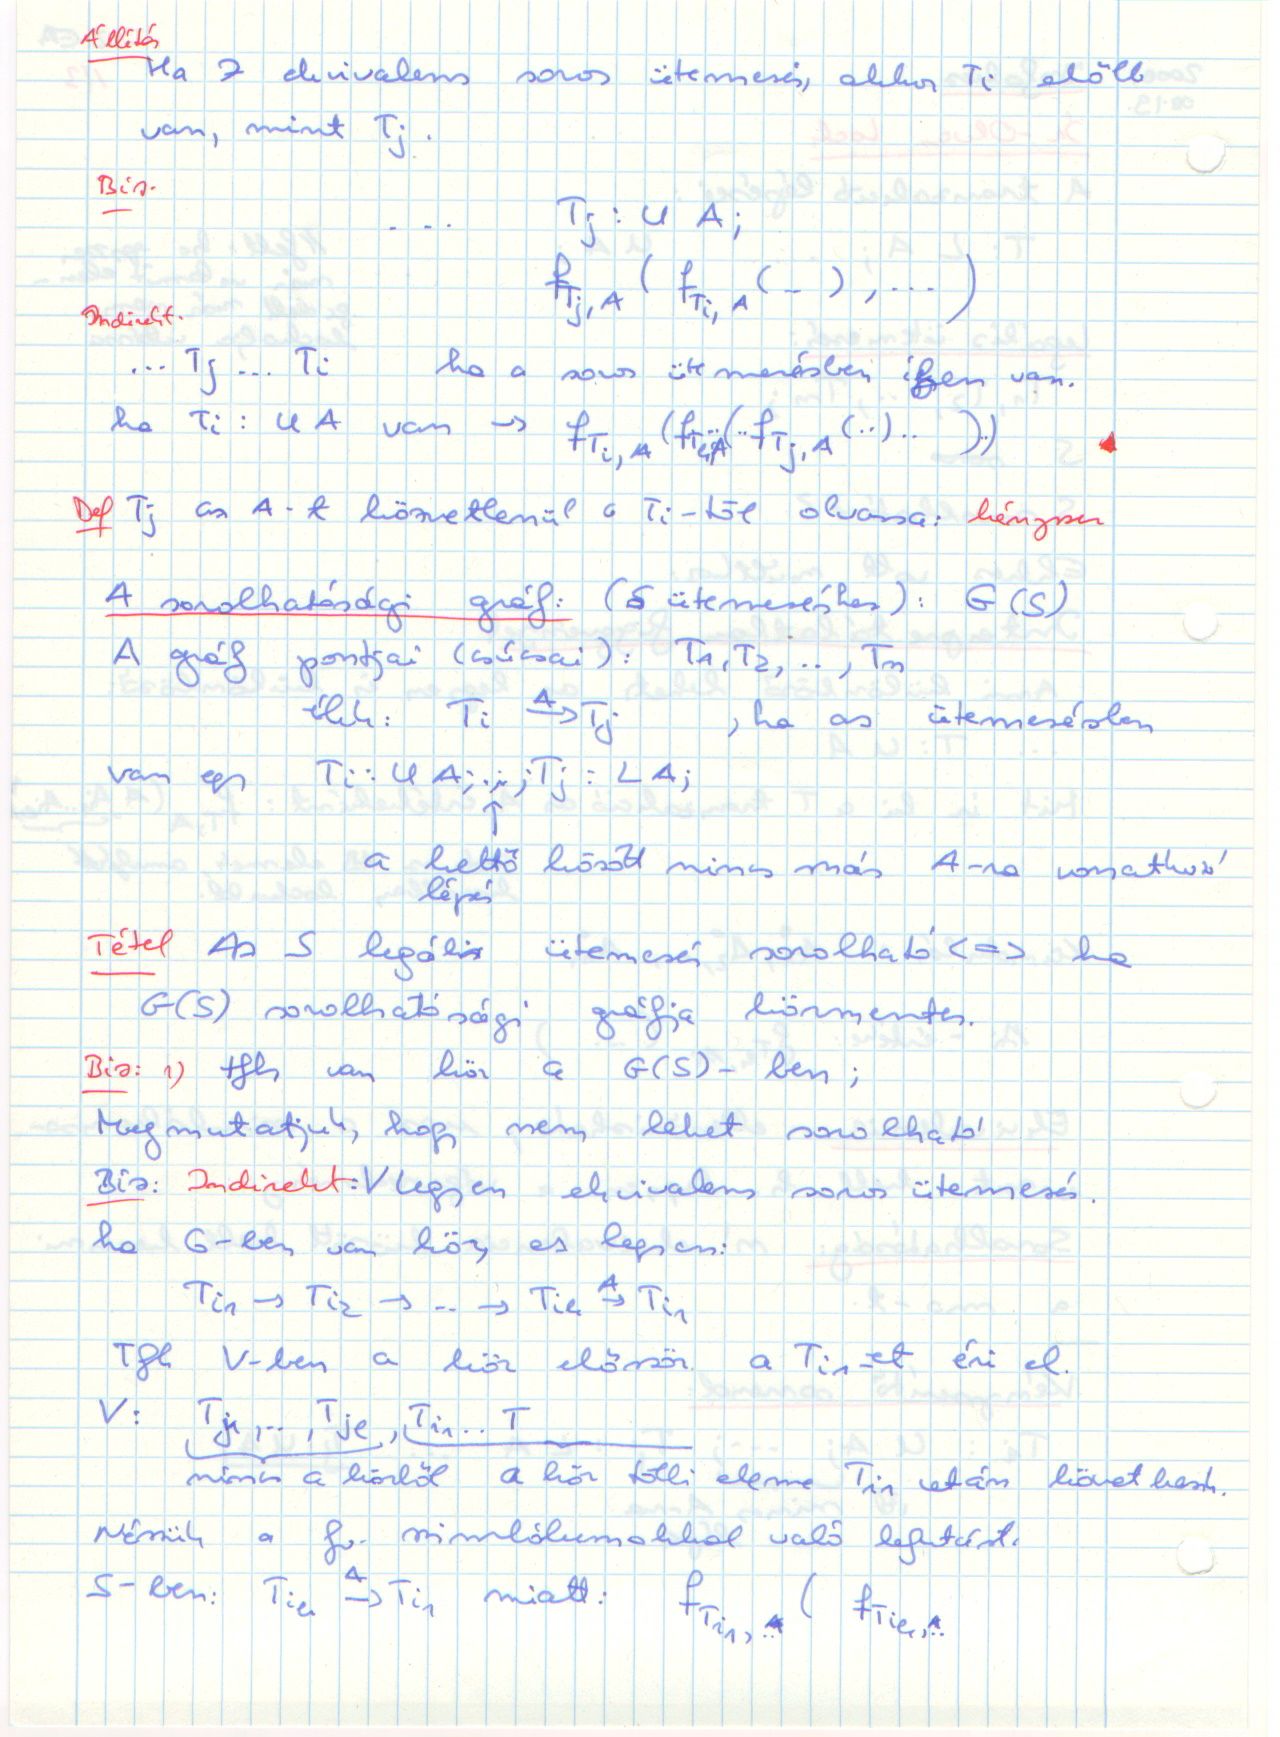 Állítás
Ha ∃ ekvivalens soros ütemezés, akkor Ti előbb
van, mint Tj.
Biz.
... Tj : U A;
f_{Tj, A} ( f_{Ti, A} (-), ... )
Indirekt.
... Tj ... Ti ha a soros ütemezésben ilyen van.
ha Ti : U A van → f_{Ti, A} ( (.. f_{Tj, A} (..) .. ) .. )
Def Tj az A-t közvetlenül a Ti-től olvassa: kényszer
A sorolhatósági gráf: (S ütemezéshez): G(S)
A gráf pontjai (csúcsai): T1, T2, .., Tn
élek: Ti -A→ Tj , ha az ütemezésben
van egy Ti : U A; ..; Tj : L A;
↑
a kettő között nincs más A-ra vonatkozó
lépés
Tétel Az S legális ütemezés sorolható <=> ha
G(S) sorolhatósági gráfja körmentes.
Biz: 1) tfh van kör a G(S)-ben;
Megmutatjuk, hogy nem lehet sorolható
Biz: Indirekt: V legyen ekvivalens soros ütemezés.
ha G-ben van kör, ez legyen:
Ti1 → Ti2 → .. → Tik -A→ Ti1
Tfh V-ben a kör először a Ti1-et éri el.
V: Tj1, .., Tjl, Ti1 .. T
nincs a körből a kör többi eleme Ti1 után következik.
Nézzük a fv. szimbólumokkal való lefutást.
S-ben: Tik -A→ Ti1 miatt: f_{Ti1, ..A} ( f_{Tik, A..}